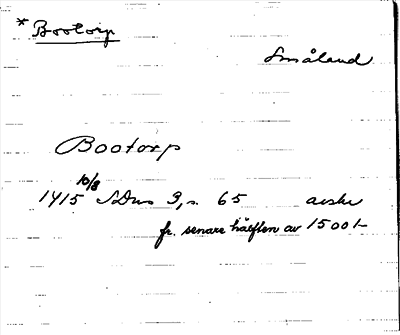 * Bootorp
Småland
Bootorp
1415 10/8 SDns 3, s. 65 avskr
fr. senare hälften av 1500 t